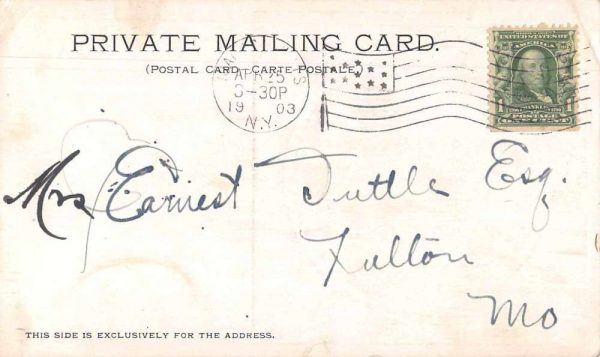 PRIVATE MAILING CARD.
(POSTAL CARD-CARTE POSTALE.)
APR 25
3-30P
19 03
N.Y.
UNITED STATES OF AMERICA
FRANKLIN
POSTAGE
1 ONE CENT 1
Mrs Earnest Tuttle Esq.
Fulton
Mo
THIS SIDE IS EXCLUSIVELY FOR THE ADDRESS.